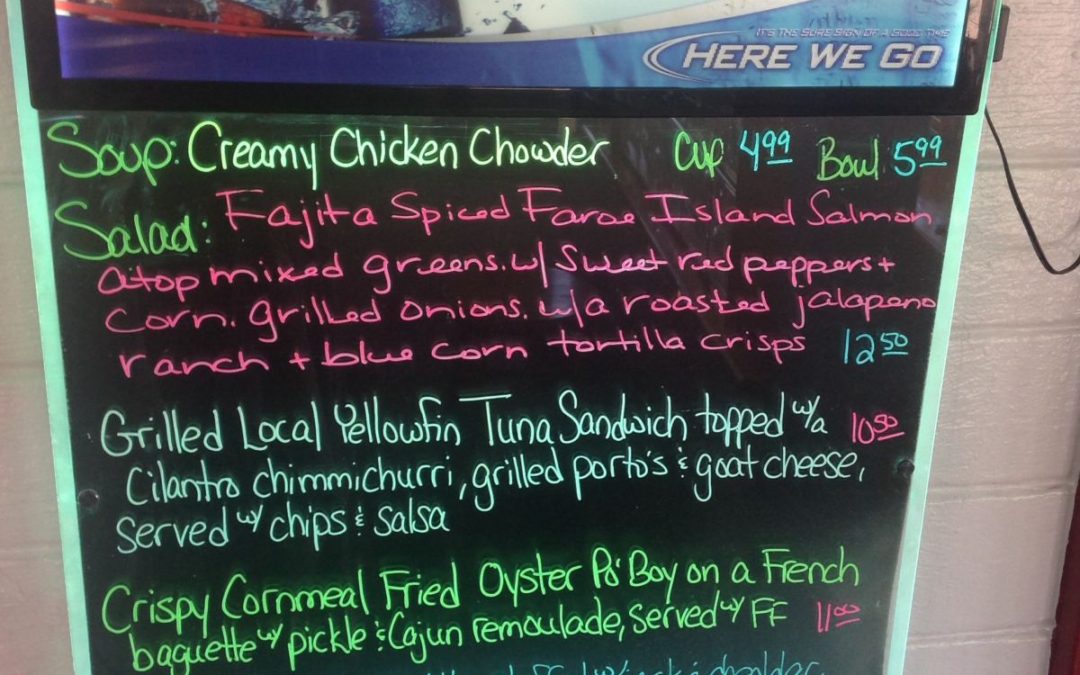 IT'S THE SURE SIGN OF A GOOD TIME
HERE WE GO
Soup: Creamy Chicken Chowder Cup 4.99 Bowl 5.99
Salad: Fajita Spiced Faroe Island Salmon
atop mixed greens. w/ sweet red peppers +
corn. grilled onions. w/a roasted jalapeno
ranch + blue corn tortilla crisps 12.50
Grilled Local Yellowfin Tuna Sandwich topped w/a 10.50
Cilantro chimmichurri, grilled porto's & goat cheese,
served w/ chips & salsa
Crispy Cornmeal Fried Oyster Po' Boy on a French
baguette w/ pickle & Cajun remoulade, served w/ FF 11.00